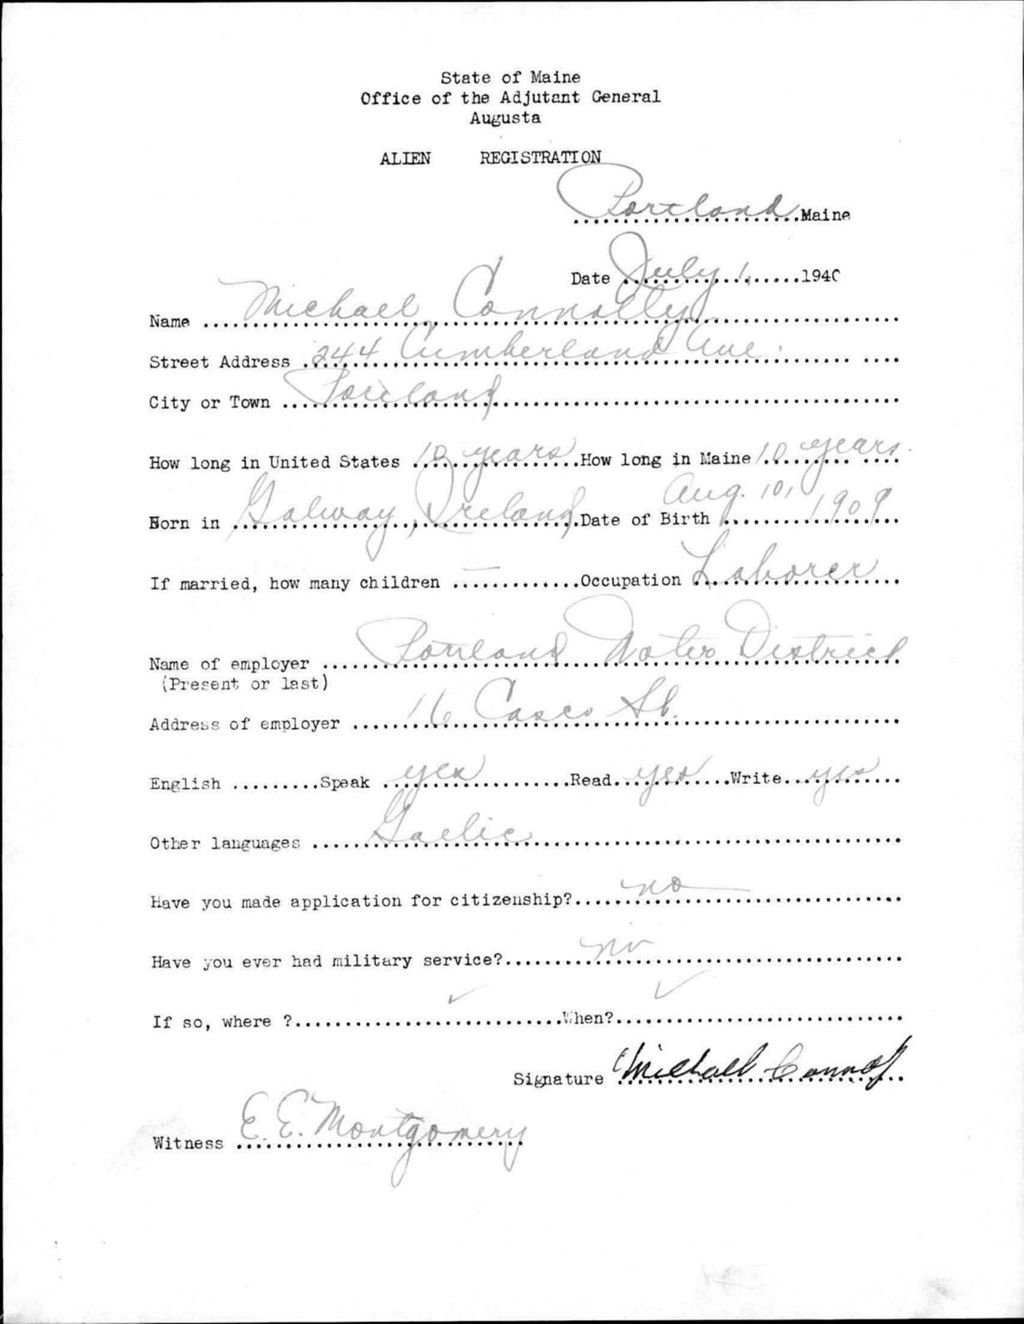 State of Maine
Office of the Adjutant General
Augusta
ALIEN REGISTRATION
Portland Maine
Date July 1, 1940
Name Michael Connolly
Street Address 244 Cumberland Ave.
City or Town Portland
How long in United States 10 years How long in Maine 10 years.
Born in Galway, Ireland Date of Birth Aug. 10, 1909
If married, how many children — Occupation Laborer
Name of employer Portland Water District
(Present or last)
Address of employer 16 Casco St.
English Speak yes Read yes Write yes
Other languages Gaelic
Have you made application for citizenship? no
Have you ever had military service? no
If so, where ? ✓ When? ✓
Signature Michael Connoly
Witness E. E. Montgomery